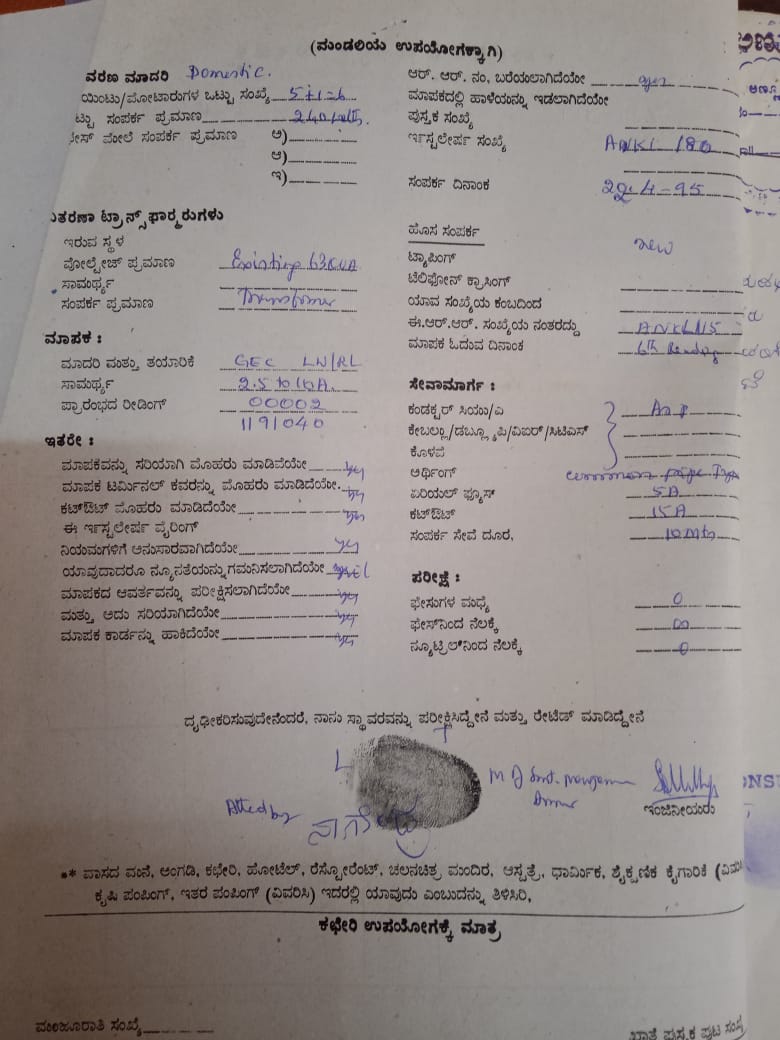 (ಮಂಡಲಿಯ ಉಪಯೋಗಕ್ಕಾಗಿ)
ವರಣ ಮಾದರಿ Domestic.
ಯಿಂಟು/ಮೋಟಾರುಗಳ ಒಟ್ಟು ಸಂಖ್ಯೆ 5+1=6
ಟ್ಟು ಸಂಪರ್ಕ ಪ್ರಮಾಣ 240
ಸಂಪರ್ಕ ಪ್ರಮಾಣ ಅ)
ಆ)
ಇ)
ಆರ್. ಆರ್. ನಂ, ಬರೆಯಲಾಗಿದೆಯೇ yes
ಮಾಪಕದಲ್ಲಿ ಹಾಳೆಯನ್ನು ಇಡಲಾಗಿದೆಯೇ
ಪುಸ್ತಕ ಸಂಖ್ಯೆ
ಸಂಖ್ಯೆ ANKL 180
ಸಂಪರ್ಕ ದಿನಾಂಕ 22-4-95
ತರಣಾ ಟ್ರಾನ್ಸ್‌ಫಾರ್ಮರುಗಳು
ಇರುವ ಸ್ಥಳ
ವೋಲ್ಟೇಜ್ ಪ್ರಮಾಣ Existing 63KVA
ಸಾಮರ್ಥ್ಯ
ಸಂಪರ್ಕ ಪ್ರಮಾಣ Transformer
ಹೊಸ ಸಂಪರ್ಕ new
ಟ್ಯಾಪಿಂಗ್
ಟೆಲಿಫೋನ್ ಕ್ರಾಸಿಂಗ್
ಯಾವ ಸಂಖ್ಯೆಯ ಕಂಬದಿಂದ
ಈ.ಆರ್.ಆರ್. ಸಂಖ್ಯೆಯ ನಂತರದ್ದು
ಮಾಪಕ ಓದುವ ದಿನಾಂಕ 6th Reading
ಮಾಪಕ :
ಮಾದರಿ ಮತ್ತು ತಯಾರಿಕೆ GEC
ಸಾಮರ್ಥ್ಯ 2.5 to 10A.
ಪ್ರಾರಂಭದ ರೀಡಿಂಗ್ 00002
1191040
ಸೇವಾಮಾರ್ಗ :
ಕಂಡಕ್ಟರ್ ಸಿಯು/ಎ
ಕೇಬಲ್ಲು/ಡಬ್ಲ್ಯೂಪಿ/ವಿಐರ್/ಸಿಟಿಎಸ್
ಕೊಳವೆ
ಅರ್ಥಿಂಗ್ common pipe Type
ಏರಿಯಲ್ ಫ್ಯೂಸ್ 5A
ಕಟ್‌ಔಟ್ 15A
ಸಂಪರ್ಕ ಸೇವೆ ದೂರ, 10 Mts
ಇತರೇ :
ಮಾಪಕವನ್ನು ಸರಿಯಾಗಿ ಮೊಹರು ಮಾಡಿವೆಯೇ yes
ಮಾಪಕ ಟರ್ಮಿನಲ್ ಕವರನ್ನು ಮೊಹರು ಮಾಡಿದೆಯೇ. yes
ಕಟ್‌ಔಟ್ ಮೊಹರು ಮಾಡಿದೆಯೇ yes
ಈ ವೈರಿಂಗ್
ನಿಯಮಗಳಿಗೆ ಅನುಸಾರವಾಗಿದೆಯೇ yes
ಯಾವುದಾದರೂ ನ್ಯೂನತೆಯನ್ನು ಗಮನಿಸಲಾಗಿದೆಯೇ
ಮಾಪಕದ ಆವರ್ತವನ್ನು ಪರೀಕ್ಷಿಸಲಾಗಿದೆಯೇ yes
ಮತ್ತು ಅದು ಸರಿಯಾಗಿದೆಯೇ yes
ಮಾಪಕ ಕಾರ್ಡನ್ನು ಹಾಕಿದೆಯೇ yes
ಪರೀಕ್ಷೆ :
ಫೇಸುಗಳ ಮಧ್ಯೆ 0
ಫೇಸ್‌ನಿಂದ ನೆಲಕ್ಕೆ ∞
ನ್ಯೂಟ್ರಲ್‌ನಿಂದ ನೆಲಕ್ಕೆ 0
ದೃಢೀಕರಿಸುವುದೇನೆಂದರೆ, ನಾನು ಸ್ಥಾವರವನ್ನು ಪರೀಕ್ಷಿಸಿದ್ದೇನೆ ಮತ್ತು ರೇಟೆಡ್ ಮಾಡಿದ್ದೇನೆ
by
ಇಂಜಿನೀಯರು
** ವಾಸದ ಮನೆ, ಅಂಗಡಿ, ಕಛೇರಿ, ಹೋಟೆಲ್, ರೆಸ್ಟೋರೆಂಟ್, ಚಲನಚಿತ್ರ ಮಂದಿರ, ಆಸ್ಪತ್ರೆ, ಧಾರ್ಮಿಕ, ಶೈಕ್ಷಣಿಕ ಕೈಗಾರಿಕೆ
ಕೃಷಿ ಪಂಪಿಂಗ್, ಇತರ ಪಂಪಿಂಗ್ (ವಿವರಿಸಿ) ಇದರಲ್ಲಿ ಯಾವುದು ಎಂಬುದನ್ನು ತಿಳಿಸಿರಿ,
ಕಛೇರಿ ಉಪಯೋಗಕ್ಕೆ ಮಾತ್ರ
ಮಂಜೂರಾತಿ ಸಂಖ್ಯೆ
ಖಾತೆ ಪುಸ್ತಕ ಪುಟ